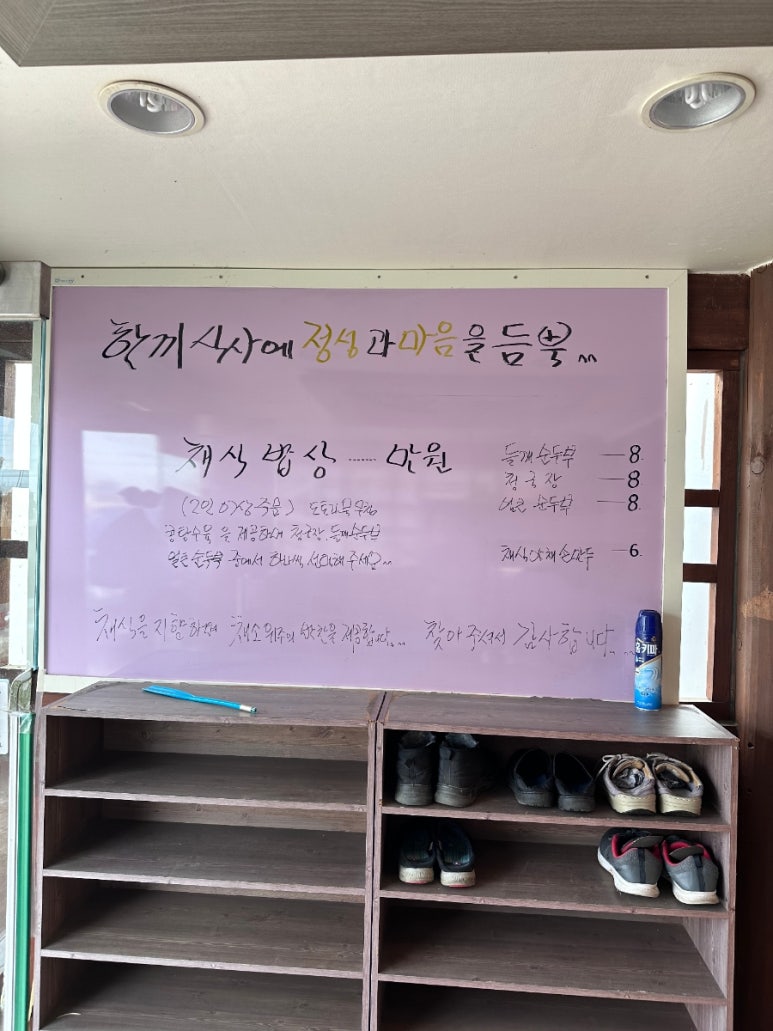 한끼 식사에 정성과 마음을 듬뿍^^
채식 밥상 ······ 만원
(2인 이상 주문) 도토리묵무침
콩탕수육 을 제공하며 청국장, 들깨순두부
얼큰순두부 중에서 하나씩 선택해주세요^^
들깨순두부 — 8.
청국장 — 8
얼큰 순두부 — 8.
채식야채손만두 — 6.
채식을 지향하며 채소위주의 반찬을 제공합니다.^^ 찾아주셔서 감사합니다.
홈키파